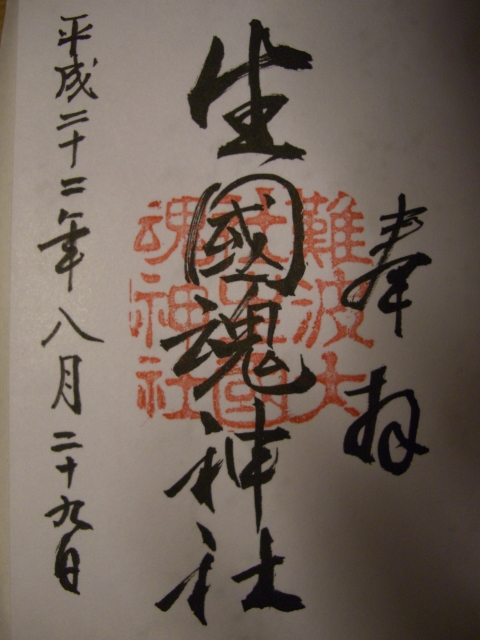 奉拝
生國魂神社
難波大
社生國
魂神社
平成二十二年八月二十九日